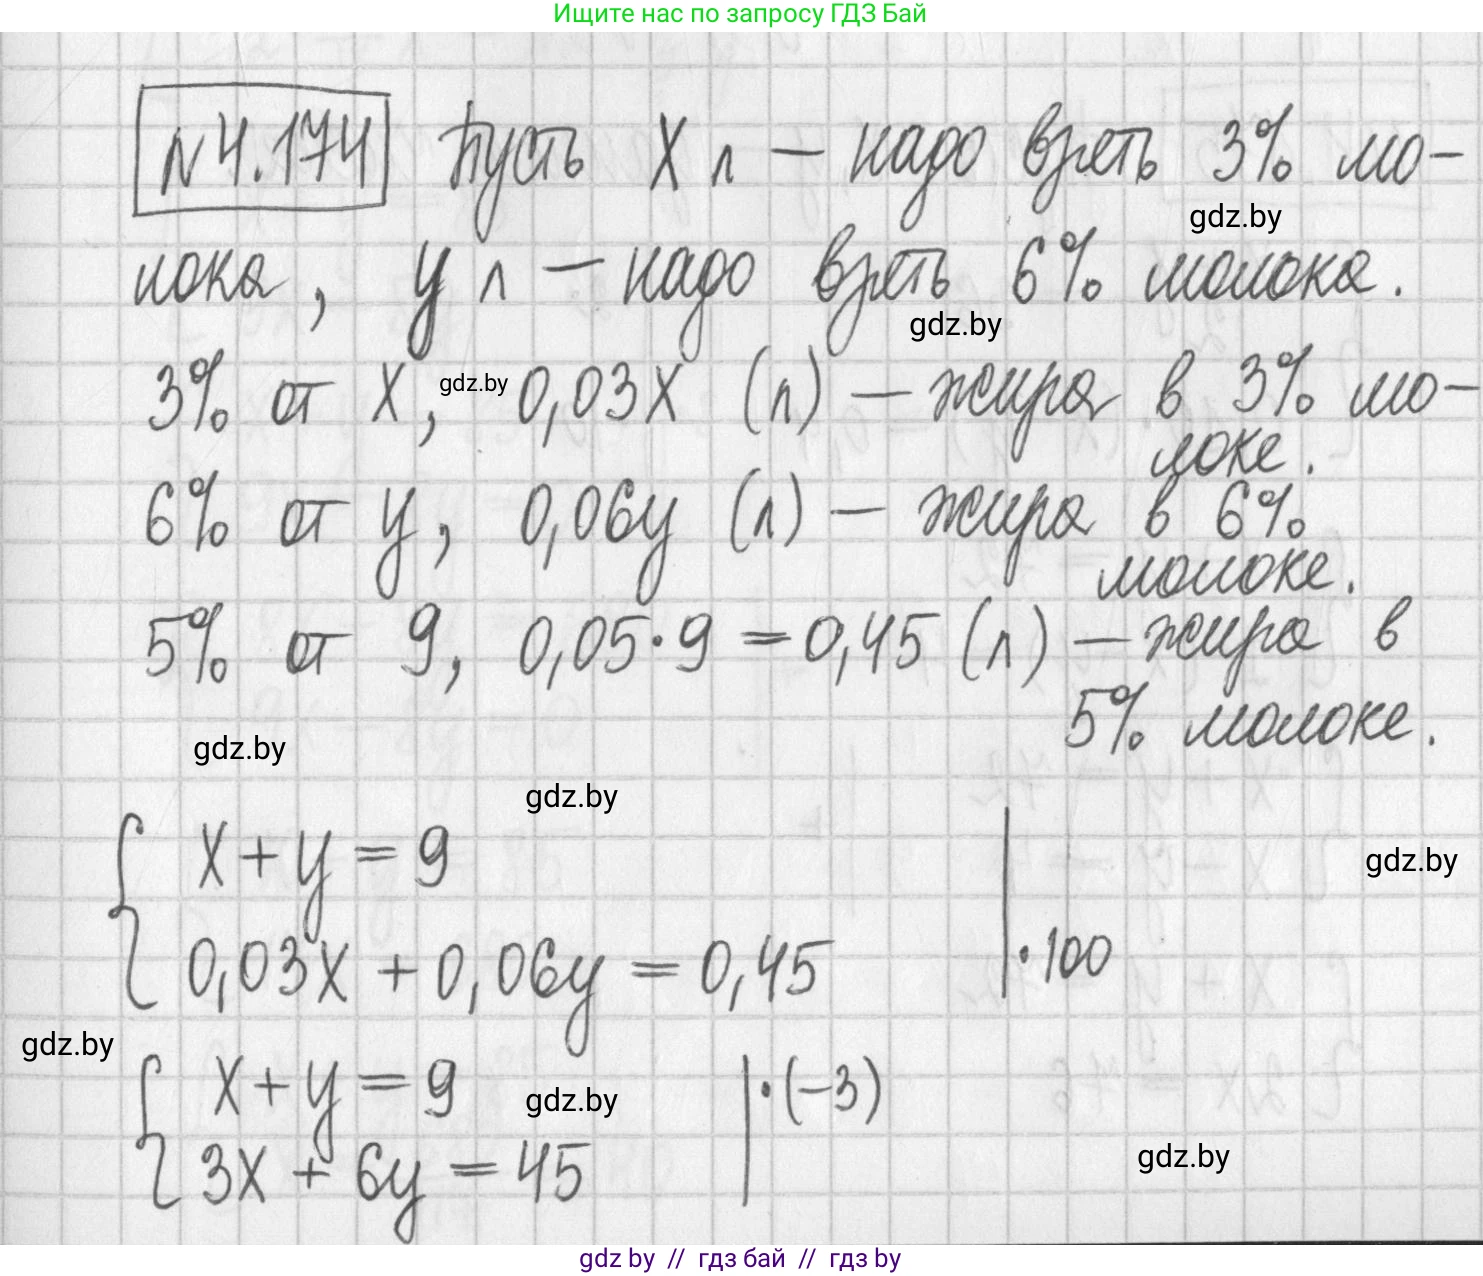 Ищите нас по запросу ГДЗ Бай
N4.174 Пусть X л — надо взять 3% мо-
gdz.by
лока, y л — надо взять 6% молока.
gdz.by
3% от X, gdz.by 0,03X (л) — жира в 3% мо-
локе.
6% от y, 0,06y (л) — жира в 6%
молоке.
5% от 9, 0,05·9 = 0,45 (л) — жира в
5% молоке.
gdz.by
gdz.by
X + y = 9
gdz.by
0,03X + 0,06y = 0,45 | ·100
gdz.by
X + y = 9 | ·(-3)
gdz.by
3X + 6y = 45
gdz.by
gdz by // гдз бай // гдз by